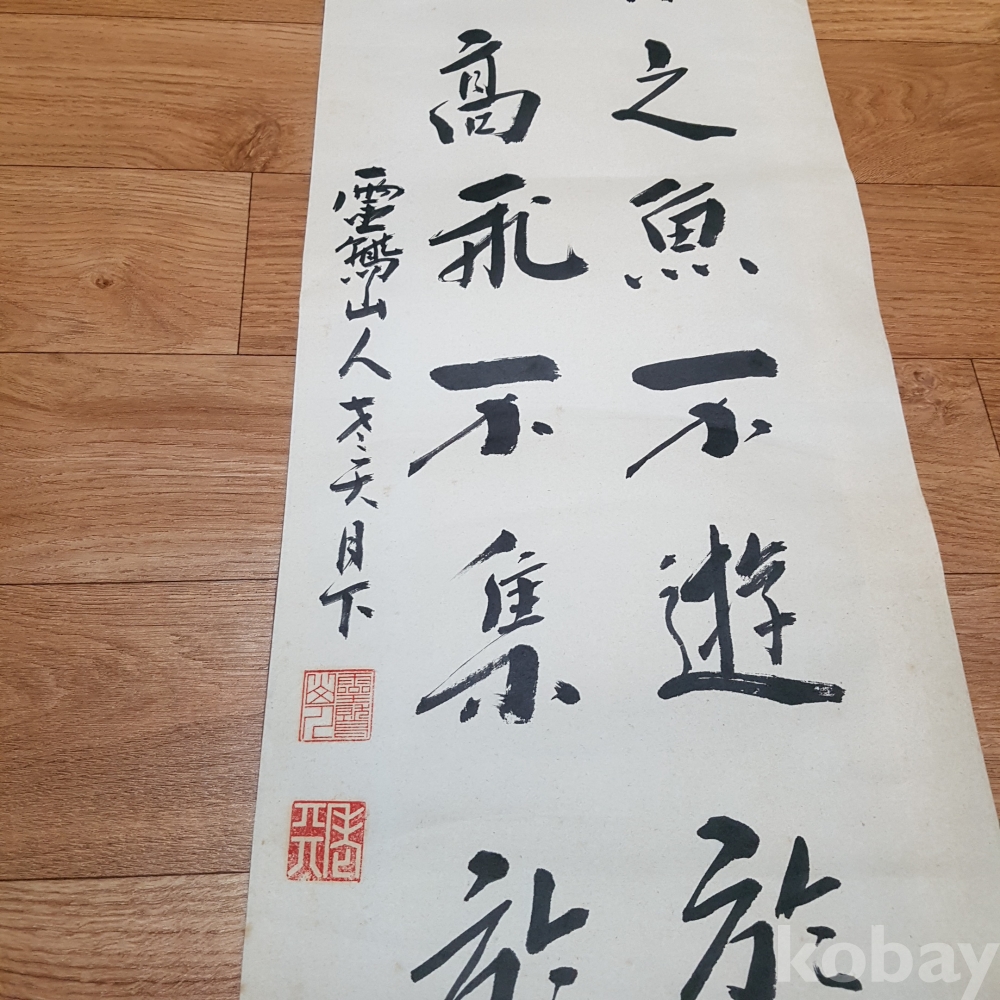 之魚不遊於
高飛不集於
靈鷲山人老天月下
kobay